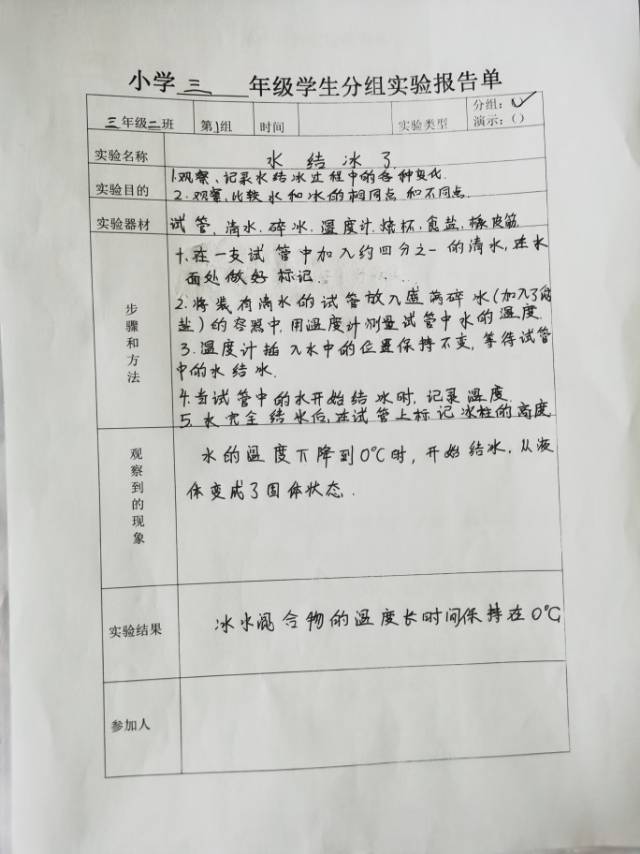 小学三年级学生分组实验报告单
三年级二班 第1组 时间 实验类型 分组:(✓)
演示:()
实验名称 水结冰了
实验目的 1.观察、记录水结冰过程中的各种变化.
2.观察、比较水和冰的相同点和不同点.
实验器材 试管,清水.碎冰.温度计.烧杯.食盐.橡皮筋
步骤和方法
1.在一支试管中加入约四分之一的清水,在水
面处做好标记.
2.将装有清水的试管放入盛有碎冰(加入了食
盐)的容器中,用温度计测量试管中水的温度.
3.温度计插入水中的位置保持不变,等待试管
中的水结冰.
4.当试管中的水开始结冰时,记录温度.
5.水完全结冰后,在试管上标记冰柱的高度
观察到的现象
水的温度下降到0℃时,开始结冰.从液
体变成了固体状态.
实验结果 冰水混合物的温度长时间保持在0℃
参加人